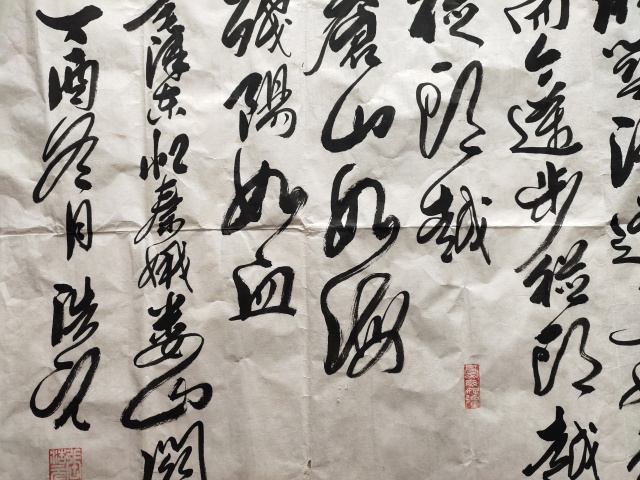 雄關漫道
而今邁步從頭越
從頭越
蒼山如海
殘陽如血
毛澤東憶秦娥婁山關
丁酉冬月浩